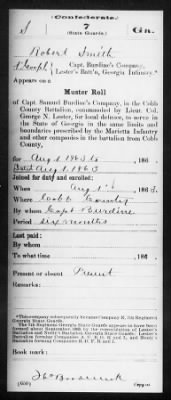 Confederate.
S 7 Ga.
(State Guards.)
Robert Smith
Capt. Burdine's Company,
Lester's Batt'n, Georgia Infantry.*
Appears on a
Muster Roll
of Capt. Samuel Burdine's Company, in the Cobb
County Battalion, commanded by Lieut. Col.
George N. Lester, for local defence, to serve in
the State of Georgia in the same limits and
boundaries prescribed by the Marietta Infantry
and other companies in the battalion from Cobb
County,
for Aug 1 1863 to , 186 .
Aug 1, 1863
Joined for duty and enrolled:
When Aug 1 , 1863.
Where Cobb County
By whom Capt Burdine
Period six months
Last paid:
By whom
To what time , 186 .
Present or absent Present
Remarks:
*This company subsequently became Company E, 7th Regiment
Georgia State Guards.
The 7th Regiment Georgia State Guards appears to have been
formed about September 1863 by the consolidation of
Lester's
Book mark:
(656) Copyist.